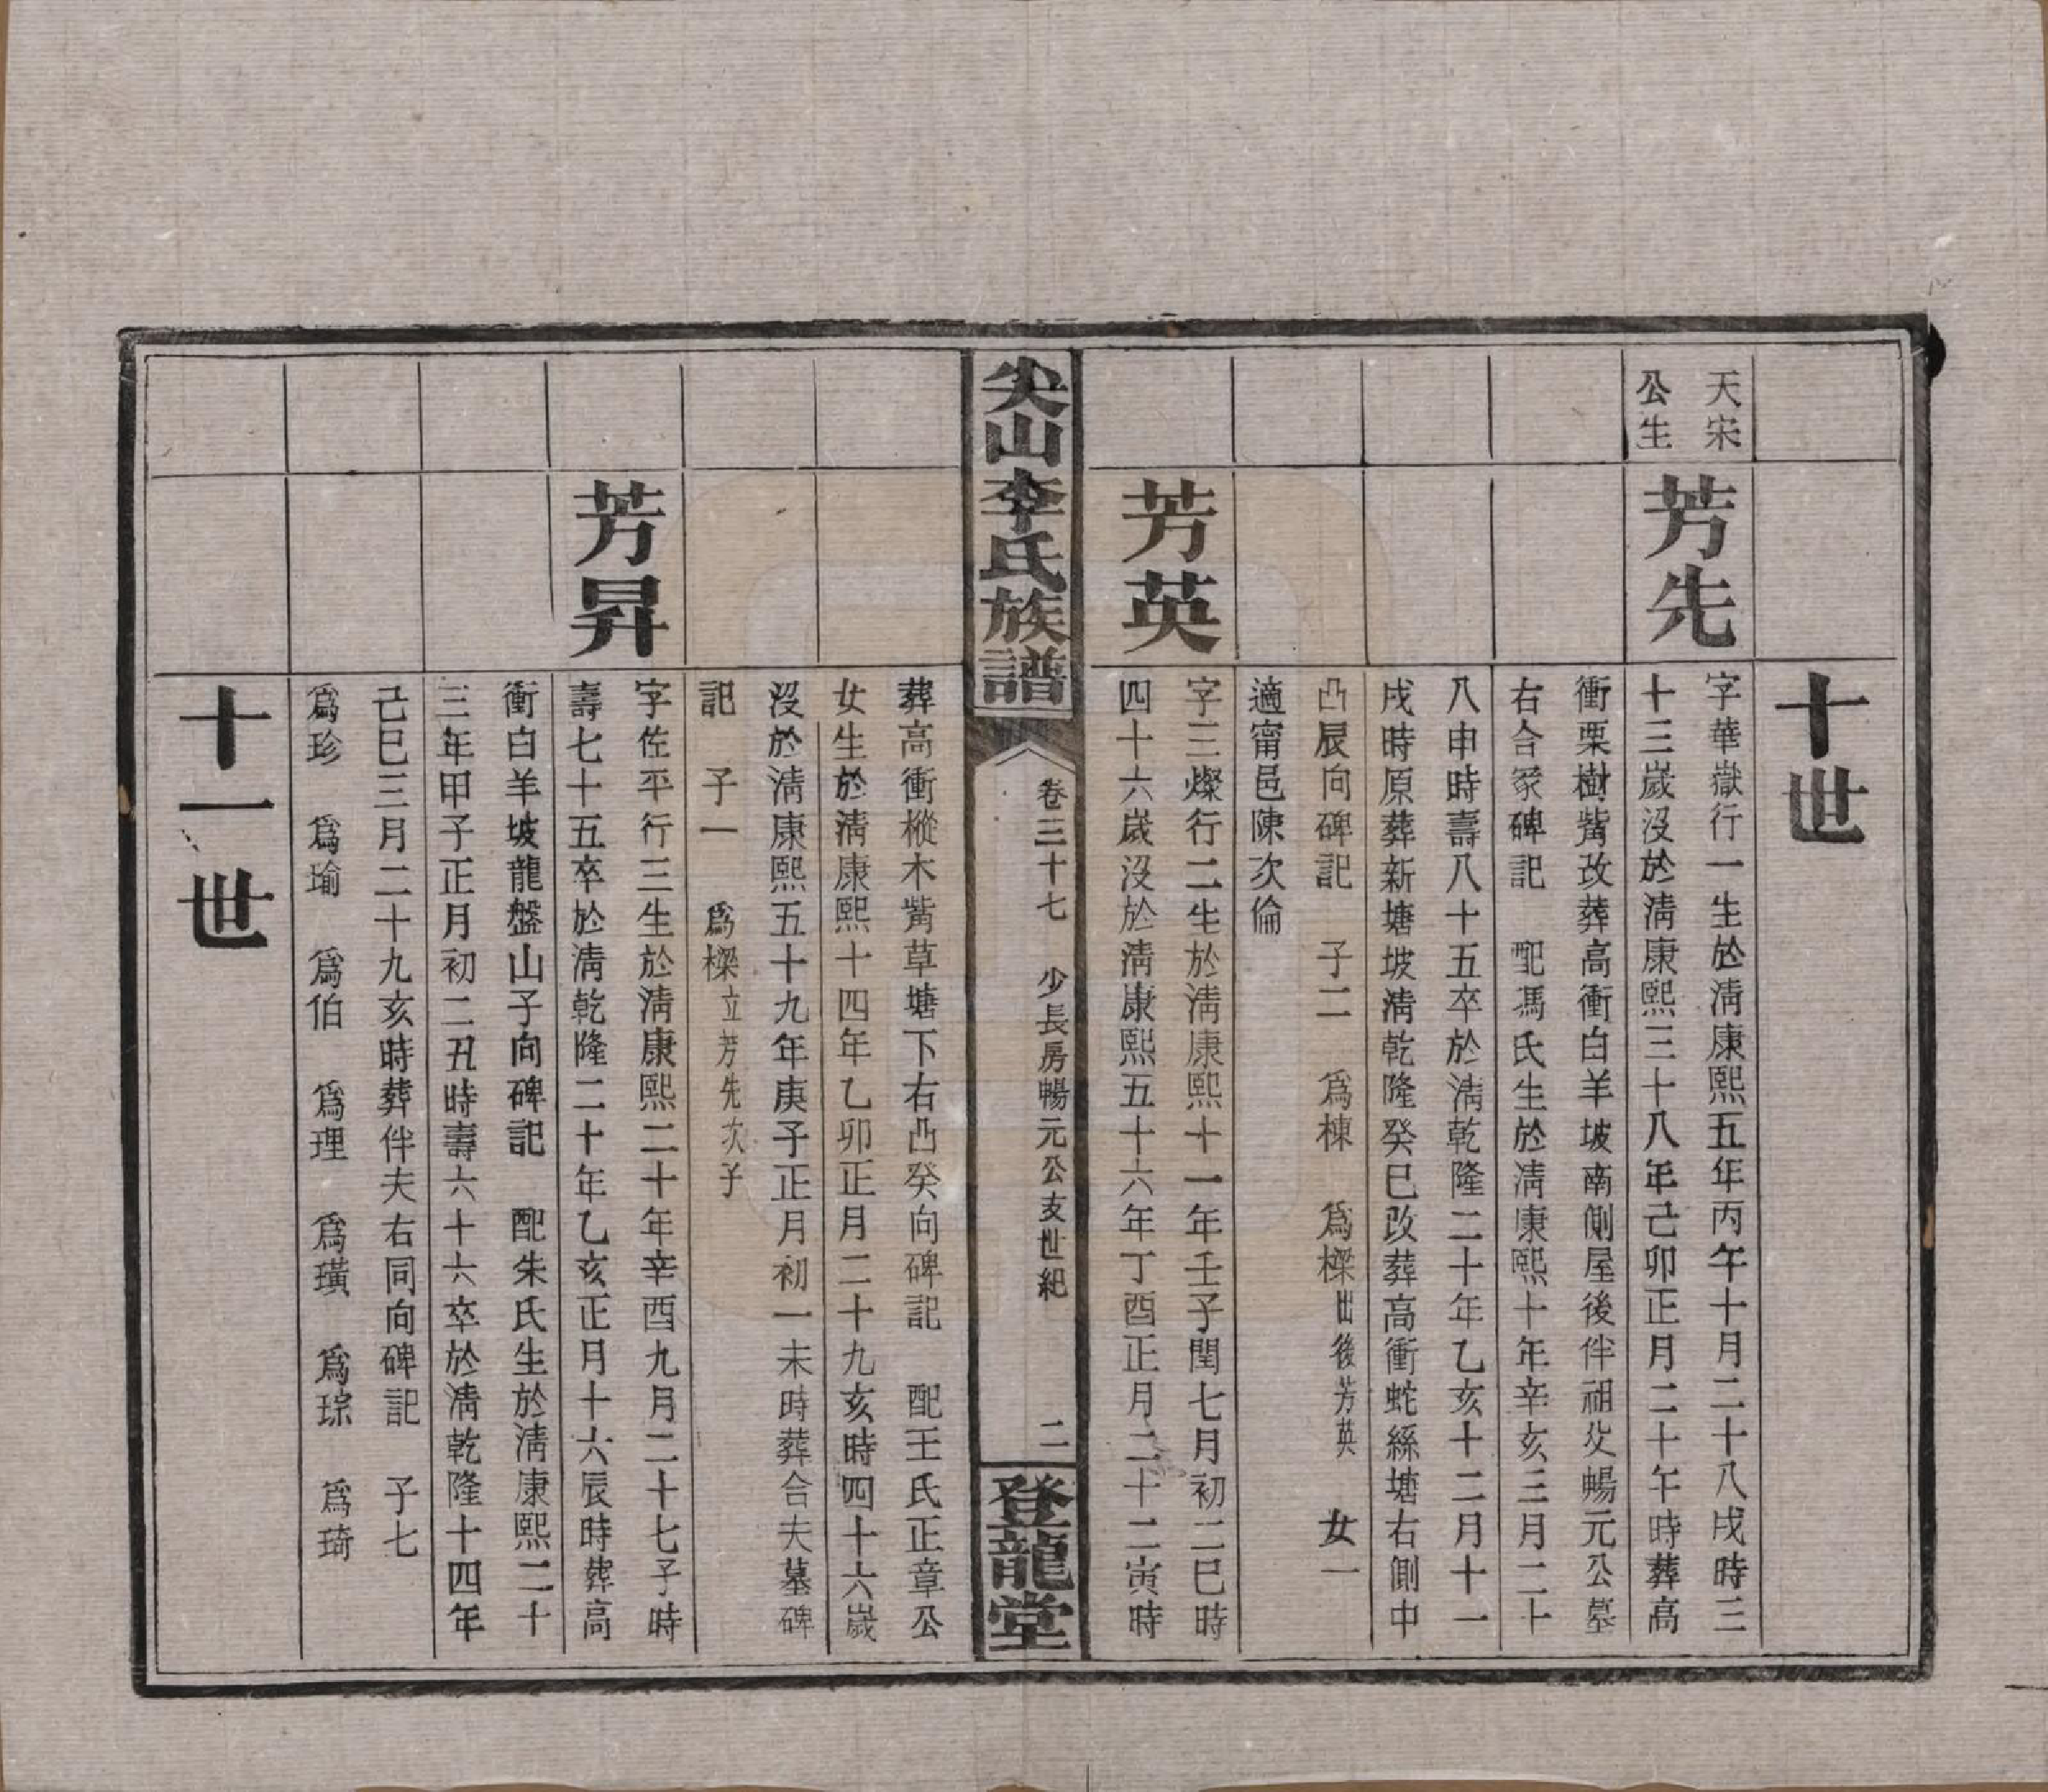 十世
天宋
公生
芳先
字華嶽行一生於淸康熙五年丙午十月二十八戌時三
十三歲沒於淸康熙三十八年己卯正月二十午時葬高
衝栗樹觜改葬高衝白羊坡南側屋後伴祖父暢元公墓
右合冢碑記　配馮氏生於淸康熙十年辛亥三月二十
八申時壽八十五卒於淸乾隆二十年乙亥十二月十一
戌時原葬新塘坡淸乾隆癸巳改葬高衝蛇絲塘右側中
凸辰向碑記　子二　爲棟　爲樑出後芳英　女一
適甯邑陳次倫
芳英
字三燦行二生於淸康熙十一年壬子閏七月初二巳時
四十六歲沒於淸康熙五十六年丁酉正月二十二寅時
尖山李氏族譜
卷三十七　少長房暢元公支世紀
二
登龍堂
葬高衝樅木觜草塘下右凸癸向碑記　配王氏正章公
女生於淸康熙十四年乙卯正月二十九亥時四十六歲
沒於淸康熙五十九年庚子正月初一未時葬合夫墓碑
記　子一　爲樑立芳先次子
芳昇
字佐平行三生於淸康熙二十年辛酉九月二十七子時
壽七十五卒於淸乾隆二十年乙亥正月十六辰時葬高
衝白羊坡龍盤山子向碑記　配朱氏生於淸康熙二十
三年甲子正月初二丑時壽六十六卒於淸乾隆十四年
己巳三月二十九亥時葬伴夫右同向碑記　子七
爲珍　爲瑜　爲伯　爲理　爲璜　爲琮　爲琦
十一世